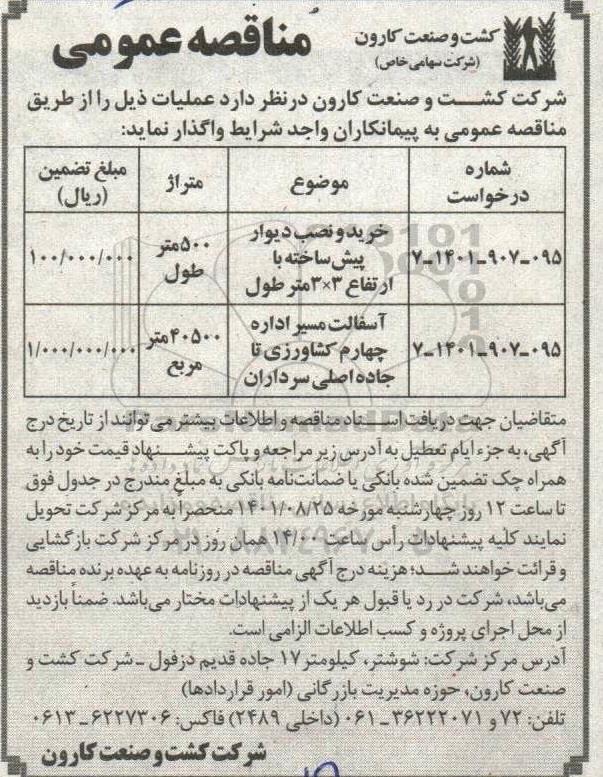 کشت و صنعت کارون
(شرکت سهامی خاص)
مناقصه عمومی
شرکت کشت و صنعت کارون در نظر دارد عملیات ذیل را از طریق
مناقصه عمومی به پیمانکاران واجد شرایط واگذار نماید:
شماره درخواست | موضوع | متراژ | مبلغ تضمین (ریال)
۷-۱۴۰۱-۹۰۷-۰۹۵ | خرید و نصب دیوار پیش ساخته با ارتفاع ۳×۳ متر طول | ۵۰۰ متر طول | ۱۰۰/۰۰۰/۰۰۰
۷-۱۴۰۱-۹۰۷-۰۹۵ | آسفالت مسیر اداره چهارم کشاورزی تا جاده اصلی سرداران | ۴۰۵۰۰ متر مربع | ۱/۰۰۰/۰۰۰/۰۰۰
متقاضیان جهت دریافت اسناد مناقصه و اطلاعات بیشتر می توانند از تاریخ درج
آگهی، به جزء ایام تعطیل به آدرس زیر مراجعه و پاکت پیشنهاد قیمت خود را به
همراه چک تضمین شده بانکی یا ضمانت‌نامه بانکی به مبلغ مندرج در جدول فوق
تا ساعت ۱۲ روز چهارشنبه مورخه ۱۴۰۱/۰۸/۲۵ منحصراً به مرکز شرکت تحویل
نمایند کلیه پیشنهادات رأس ساعت ۱۴/۰۰ همان روز در مرکز شرکت بازگشایی
و قرائت خواهند شد؛ هزینه درج آگهی مناقصه در روزنامه به عهده برنده مناقصه
می‌باشد، شرکت در رد یا قبول هر یک از پیشنهادات مختار می‌باشد. ضمناً بازدید
از محل اجرای پروژه و کسب اطلاعات الزامی است.
آدرس مرکز شرکت: شوشتر، کیلومتر ۱۷ جاده قدیم دزفول - شرکت کشت و
صنعت کارون، حوزه مدیریت بازرگانی (امور قراردادها)
تلفن: ۷۲ و ۳۶۲۲۲۰۷۱-۰۶۱ (داخلی ۲۴۸۹) فاکس: ۶۲۲۷۳۰۶-۰۶۱۳
شرکت کشت و صنعت کارون